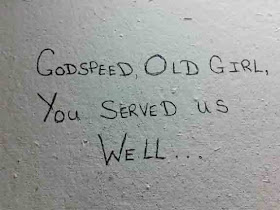 GODSPEED, OLD GIRL,
YOU SERVED US
WELL...